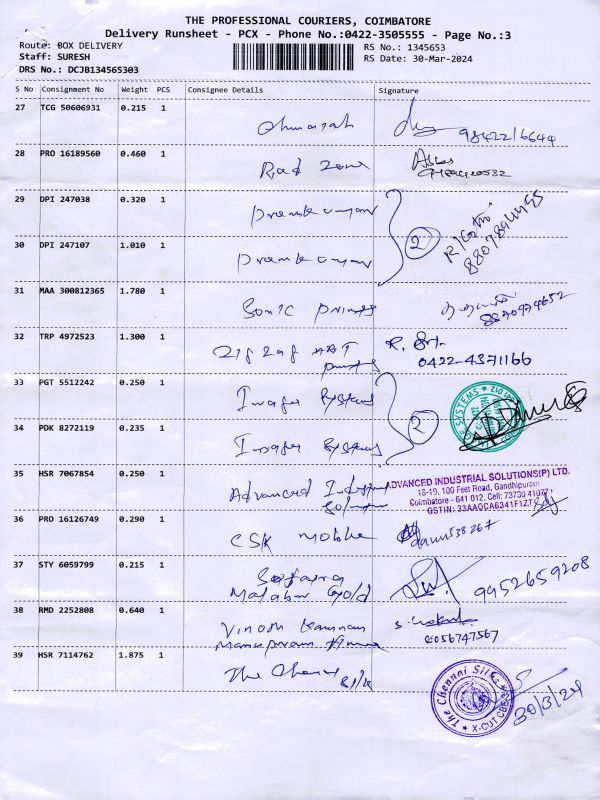 THE PROFESSIONAL COURIERS, COIMBATORE
Delivery Runsheet - PCX - Phone No.:0422-3505555 - Page No.:3
Route: BOX DELIVERY
RS No.: 1345653
Staff: SURESH
RS Date: 30-Mar-2024
DRS No.: DCJB134565303
S No Consignment No Weight PCS Consignee Details Signature
27 TCG 50606931 0.215 1
98422/6644
28 PRO 16189560 0.460 1 Rad Zone
29 DPI 247038 0.320 1 Premkumar
2
30 DPI 247107 1.010 1 Premkumar
31 MAA 300812365 1.780 1 Sonic prints
32 TRP 4972523 1.300 1 Zig zag ART
prints
0422-4371166
33 PGT 5512242 0.250 1 Image Systems
2
34 PDK 8272119 0.235 1 Image Systems
35 HSR 7067854 0.250 1 Advanced Indust
Solution
ADVANCED INDUSTRIAL SOLUTIONS(P) LTD.
18-19, 100 Feet Road, Gandhipuram
Coimbatore - 641 012. Cell: 73730 41077
GSTIN: 33AAQCA6341F1ZT
36 PRO 16126749 0.290 1 CSK mobile
37 STY 6059799 0.215 1
Malabar Gold
9952659208
38 RMD 2252808 0.640 1 Vinoth Kannan
6056747567
39 HSR 7114762 1.875 1 The Chennai
Silks
The Chennai Silks
X-CUT CBE
30/3/24